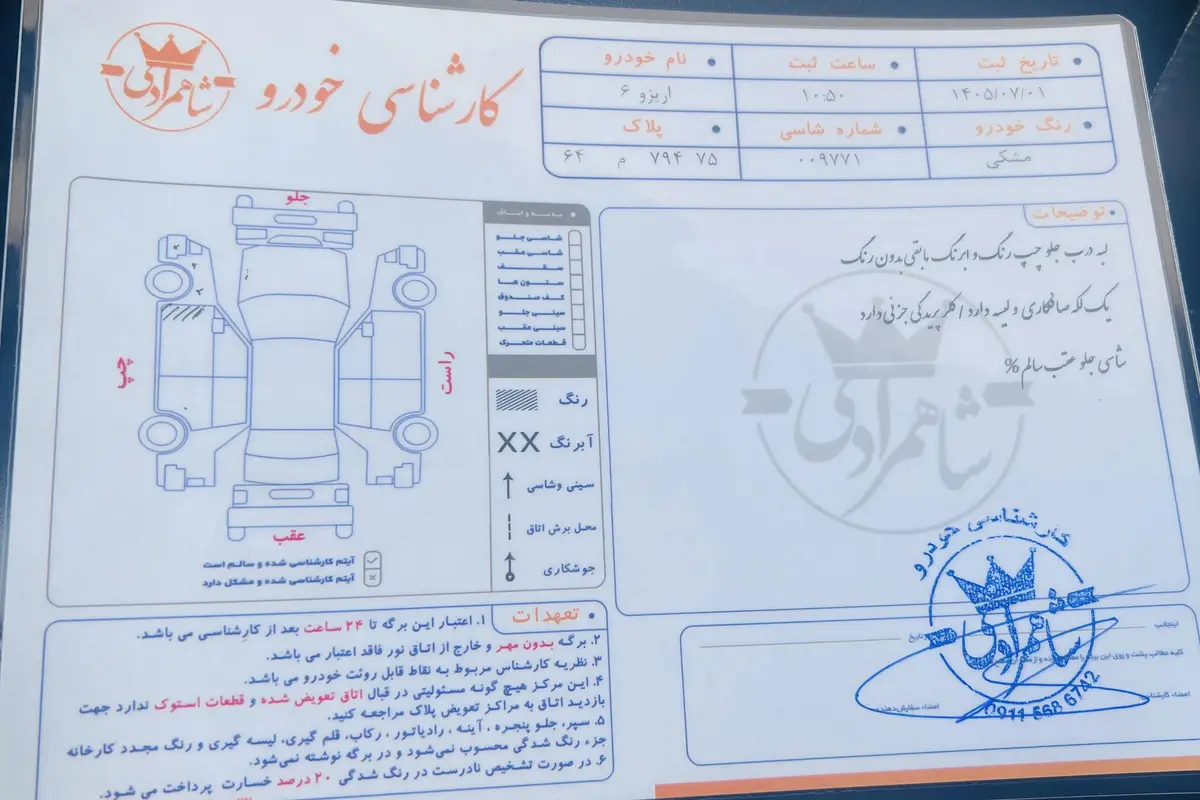 شاهمرادی
کارشناسی خودرو
تاریخ ثبت
ساعت ثبت
نام خودرو
۱۴۰۵/۰۷/۰۱
۱۰:۵۰
اریزو ۶
رنگ خودرو
شماره شاسی
پلاک
مشکی
۰۰۹۷۷۱
۷۵ ۷۹۴ م ۶۴
توضیحات
لبه درب جلو چپ رنگ و ابرنگ مابقی بدون رنگ
یک لکه صافکاری و لیسه دارد / کلر پریدگی جزئی دارد
شاسی جلو عقب سالم %
شاهمرادی
جلو
چپ
راست
عقب
بدنه و اتاق
شاسی جلو
شاسی عقب
سقف
ستون ها
کف صندوق
سینی جلو
سینی عقب
قطعات متحرک
رنگ
آبرنگ XX
سینی وشاسی
محل برش اتاق
جوشکاری
آیتم کارشناسی شده و سالم است
آیتم کارشناسی شده و مشکل دارد
تعهدات
۱. اعتبار این برگه تا ۲۴ ساعت بعد از کارشناسی می باشد.
۲. برگه بدون مهر و خارج از اتاق نور فاقد اعتبار می باشد.
۳. نظریه کارشناس مربوط به نقاط قابل روئت خودرو می باشد.
۴. این مرکز هیچ گونه مسئولیتی در قبال اتاق تعویض شده و قطعات استوک ندارد جهت
بازدید اتاق به مراکز تعویض پلاک مراجعه کنید.
۵. سپر، جلو پنجره ، آینه ، رادیاتور ، رکاب، قلم گیری، لیسه گیری و رنگ مجدد کارخانه
جزء رنگ شدگی محسوب نمی‌شود و در برگه نوشته نمی‌شود.
۶. در صورت تشخیص نادرست در رنگ شدگی ۲۰ درصد خسارت پرداخت می شود.
کارشناسی خودرو
شاهمرادی
0911 668 6742
اینجانب
تاریخ
کلیه مطالب پشت و روی این برگه را
امضاء کارشناس
امضاء سفارش‌دهنده